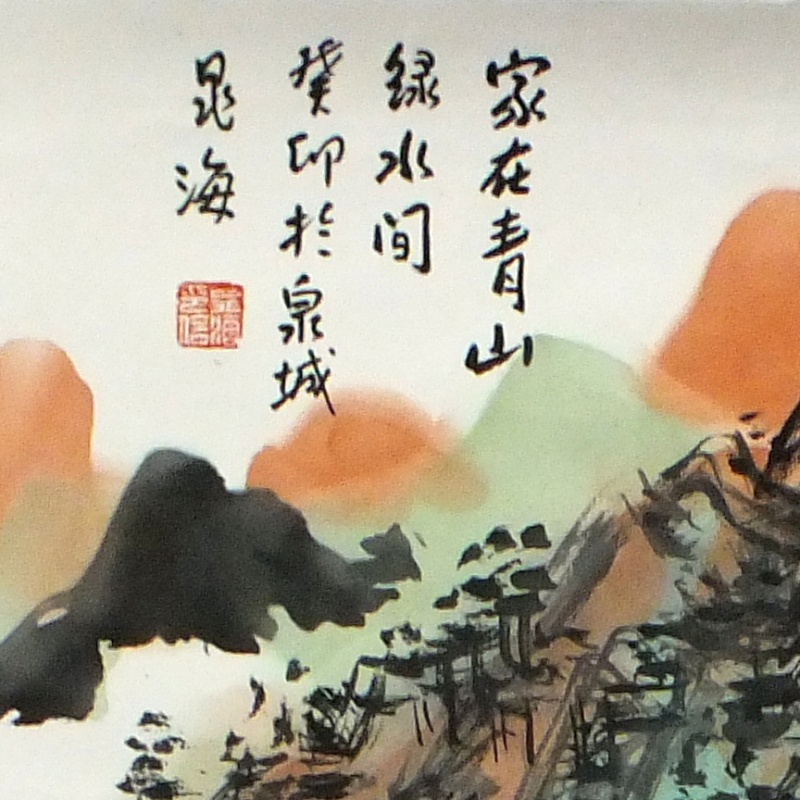 家在青山
绿水间
癸卯于泉城
晁海